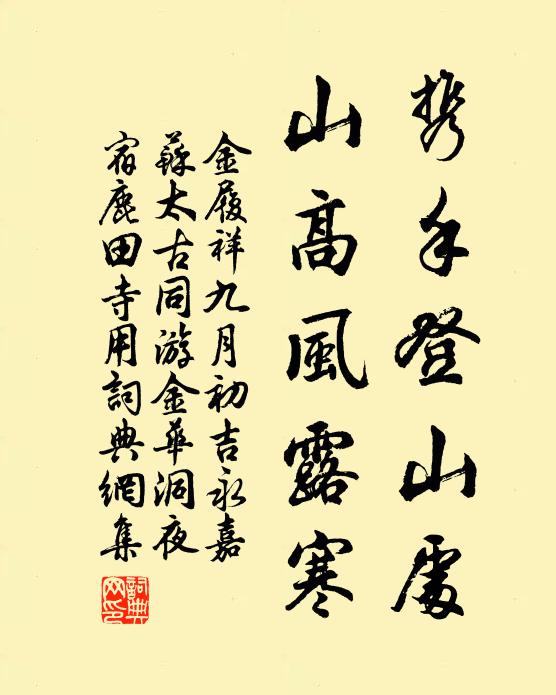 携手登山處
山高風露寒
金履祥九月初吉永嘉
蘇太古同游金華洞夜
宿鹿田寺用詞典網集
詞典
网印